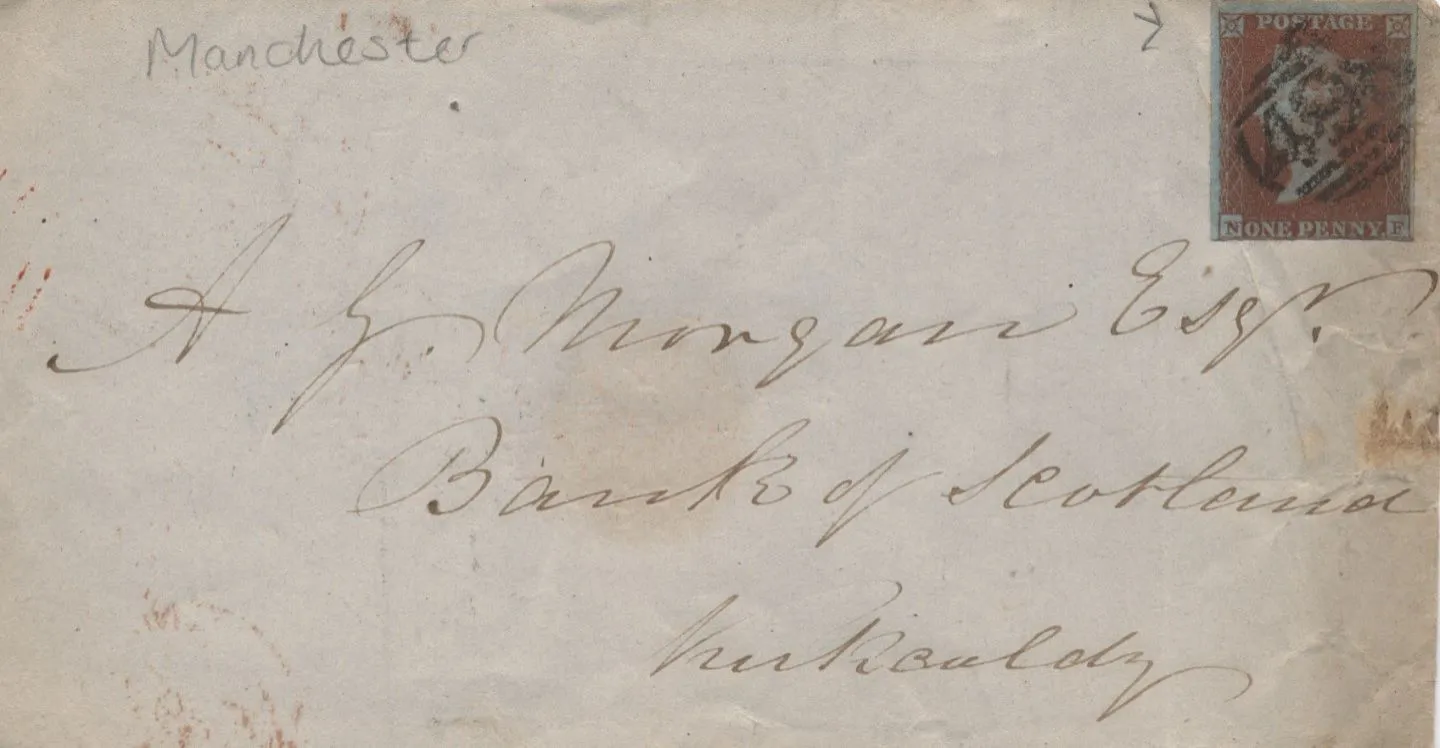 Manchester
POSTAGE
N ONE PENNY. F
A G. Morgan Esqr.
Bank of Scotland
Kirkauldy